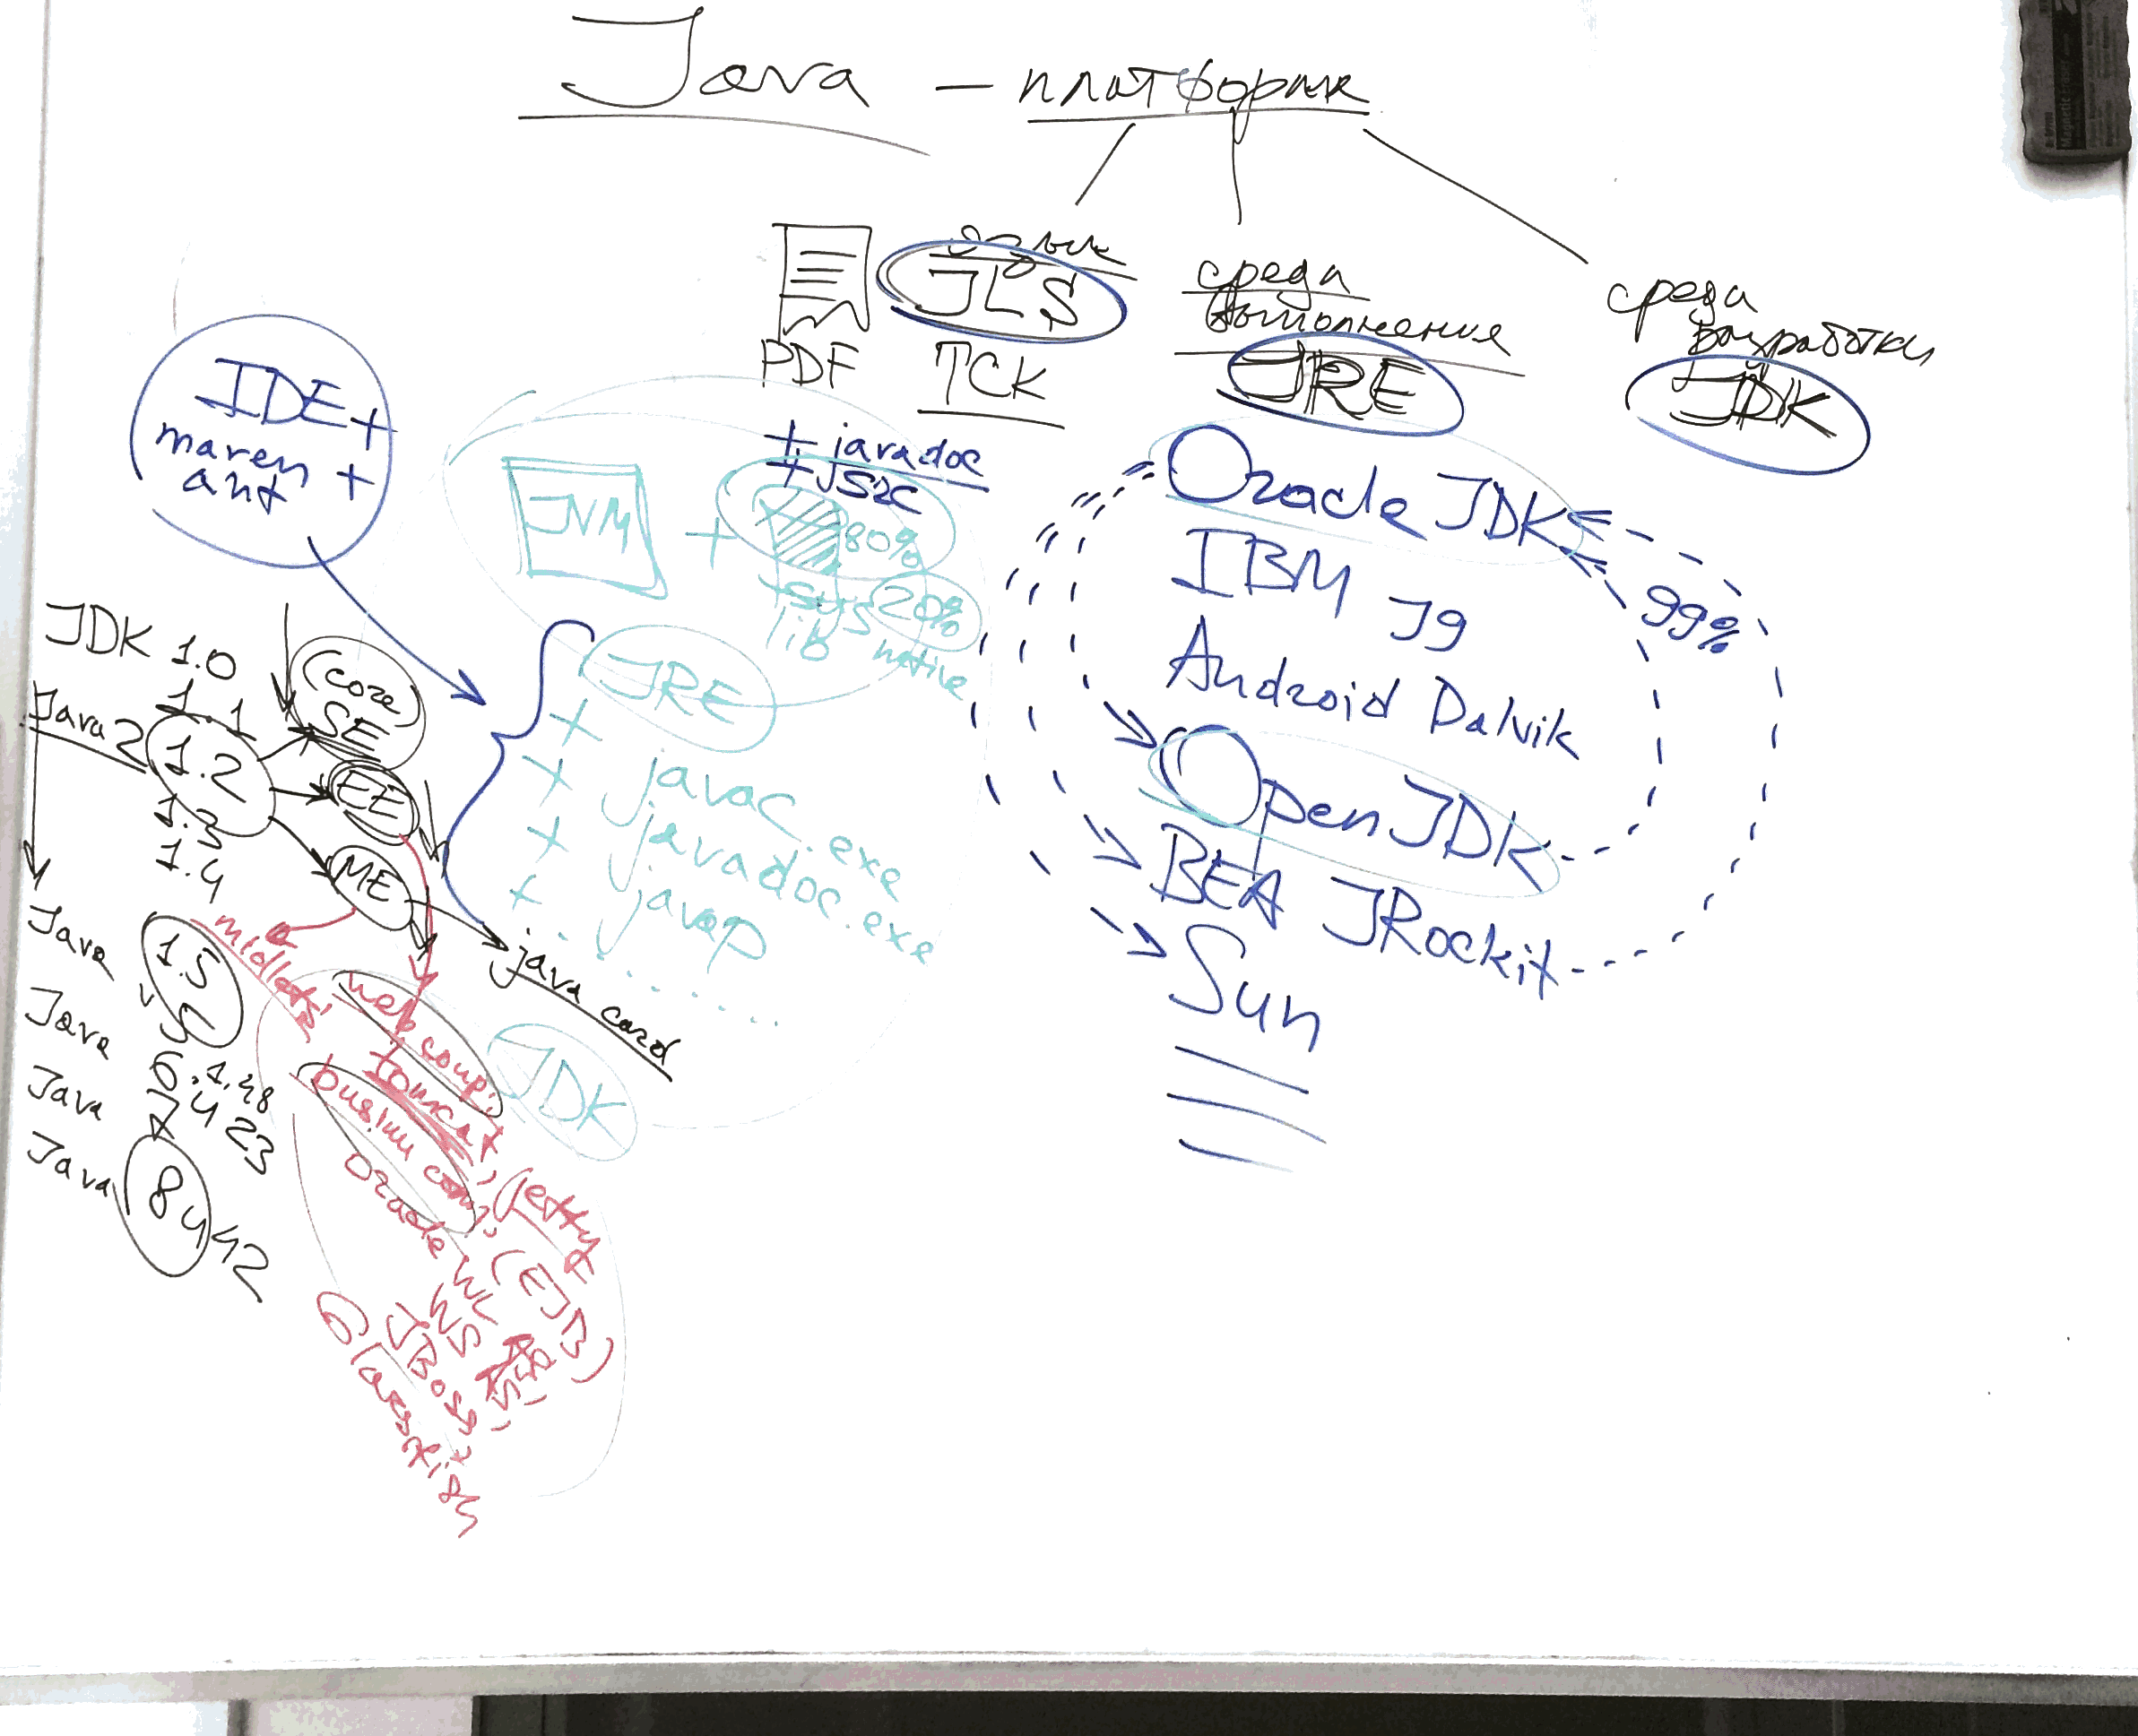 Java — платформа
язык
JLS
PDF TCK
среда
выполнения
JRE
среда
разработки
JDK
IDE +
maven +
ant
+ javadoc
+ src
JVM + 80%
sys 20%
lib native
JRE
+
+ javac.exe
+ javadoc.exe
+ javap
.......
JDK
Oracle JDK
99%
IBM J9
Android Dalvik
OpenJDK
BEA JRockit
Sun
JDK 1.0
1.1
Java 2 1.2
1.3
1.4
(core)
SE
EE
ME
java card
Java 1.5
5
Java 6
Java 7
Java 8
midlet
web comp.
Tomcat, Jetty
(EJB)
Oracle WL
JBoss
Glassfish